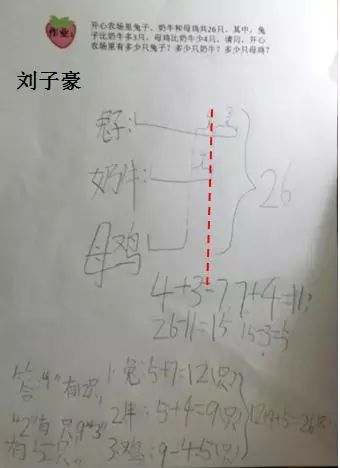 作业:
开心农场里兔子、奶牛和母鸡共26只,其中,兔
子比奶牛多3只,母鸡比奶牛少4只,请问,开心
农场里有多少只兔子?多少只奶牛?多少只母鸡?
刘子豪
兔子:
3
奶牛:
26
母鸡
4+3=7 7+4=11
26-11=15 15÷3=5
1.兔:5+7=12(只)
2牛:5+4=9(只)
3.鸡:9-4=5(只)
12+9+5=26只